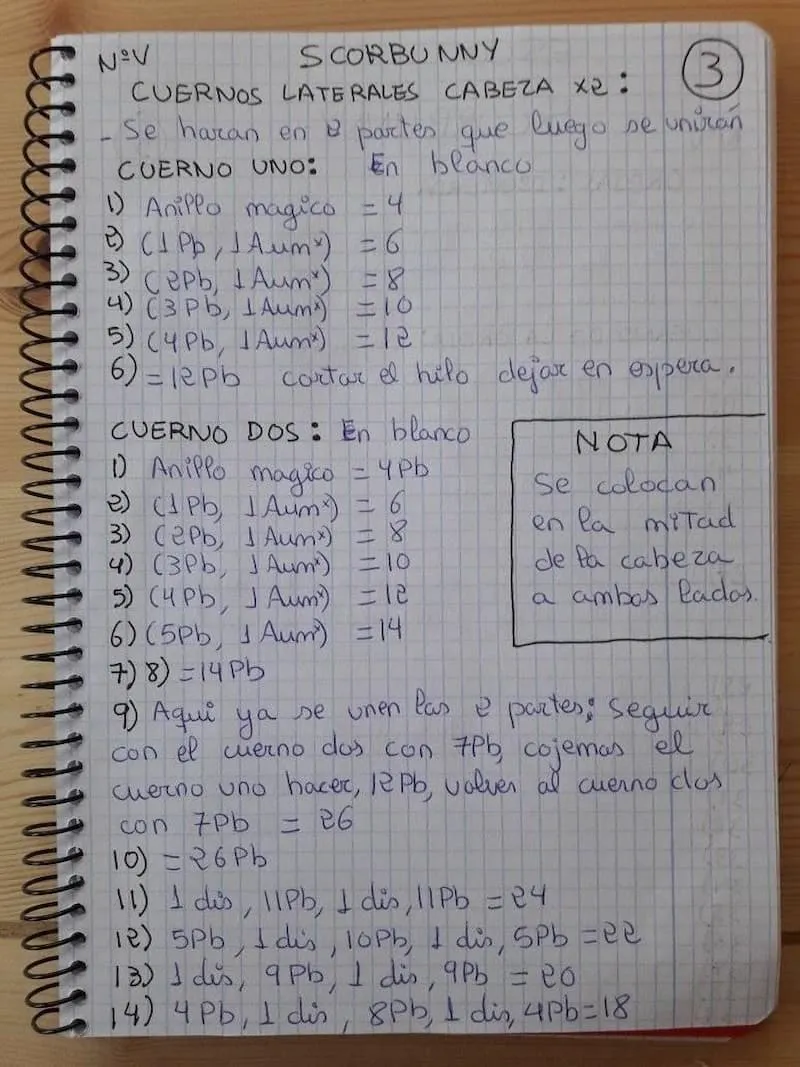 NºV SCORBUNNY 3
CUERNOS LATERALES CABEZA x2:
- Se haran en 2 partes que luego se unirán
CUERNO UNO: En blanco
1) Anillo magico = 4
2) (1Pb, 1Aumˣ) = 6
3) (2Pb, 1Aumˣ) = 8
4) (3Pb, 1Aumˣ) = 10
5) (4Pb, 1Aumˣ) = 12
6) = 12Pb cortar el hilo dejar en espera.
CUERNO DOS: En blanco
1) Anillo magico = 4Pb
2) (1Pb, 1Aumˣ) = 6
3) (2Pb, 1Aumˣ) = 8
4) (3Pb, 1Aumˣ) = 10
5) (4Pb, 1Aumˣ) = 12
6) (5Pb, 1Aumˣ) = 14
7) 8) = 14Pb
NOTA
Se colocan
en la mitad
de la cabeza
a ambos lados.
9) Aqui ya se unen las 2 partes; Seguir
con el cuerno dos con 7Pb, cojemos el
cuerno uno hacer, 12Pb, volver al cuerno dos
con 7Pb = 26
10) = 26Pb
11) 1 dis, 11Pb, 1 dis, 11Pb = 24
12) 5Pb, 1 dis, 10Pb, 1 dis, 5Pb = 22
13) 1 dis, 9Pb, 1 dis, 9Pb = 20
14) 4Pb, 1 dis, 8Pb, 1 dis, 4Pb = 18